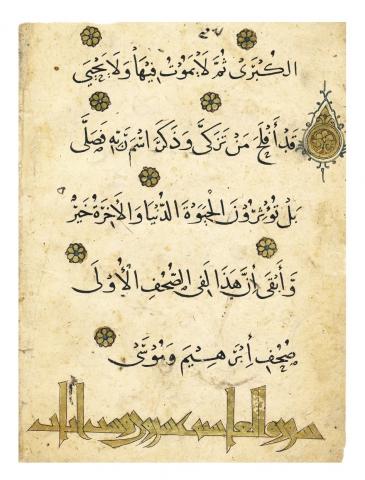 الْكُبْرَى ثُمَّ لَا يَمُوتُ فِيهَا وَلَا يَحْيَى
قَدْ أَفْلَحَ مَنْ تَزَكَّى وَذَكَرَ اسْمَ رَبِّهِ فَصَلَّى
بَلْ تُؤْثِرُونَ الْحَيَوةَ الدُّنْيَا وَالْآخِرَةُ خَيْرٌ
وَأَبْقَى إِنَّ هَذَا لَفِي الصُّحُفِ الْأُولَى
صُحُفِ إِبْرَهِيمَ وَمُوسَى
سورة الغاشية عشرون وست آيات